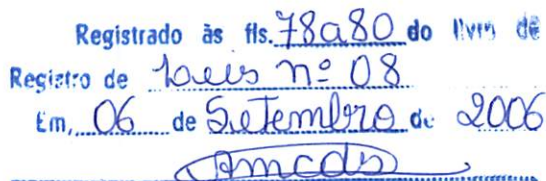 Registrado às fls. 78a80 do livro de
Registro de Leis nº 08
Em, 06 de Setembro de 2006